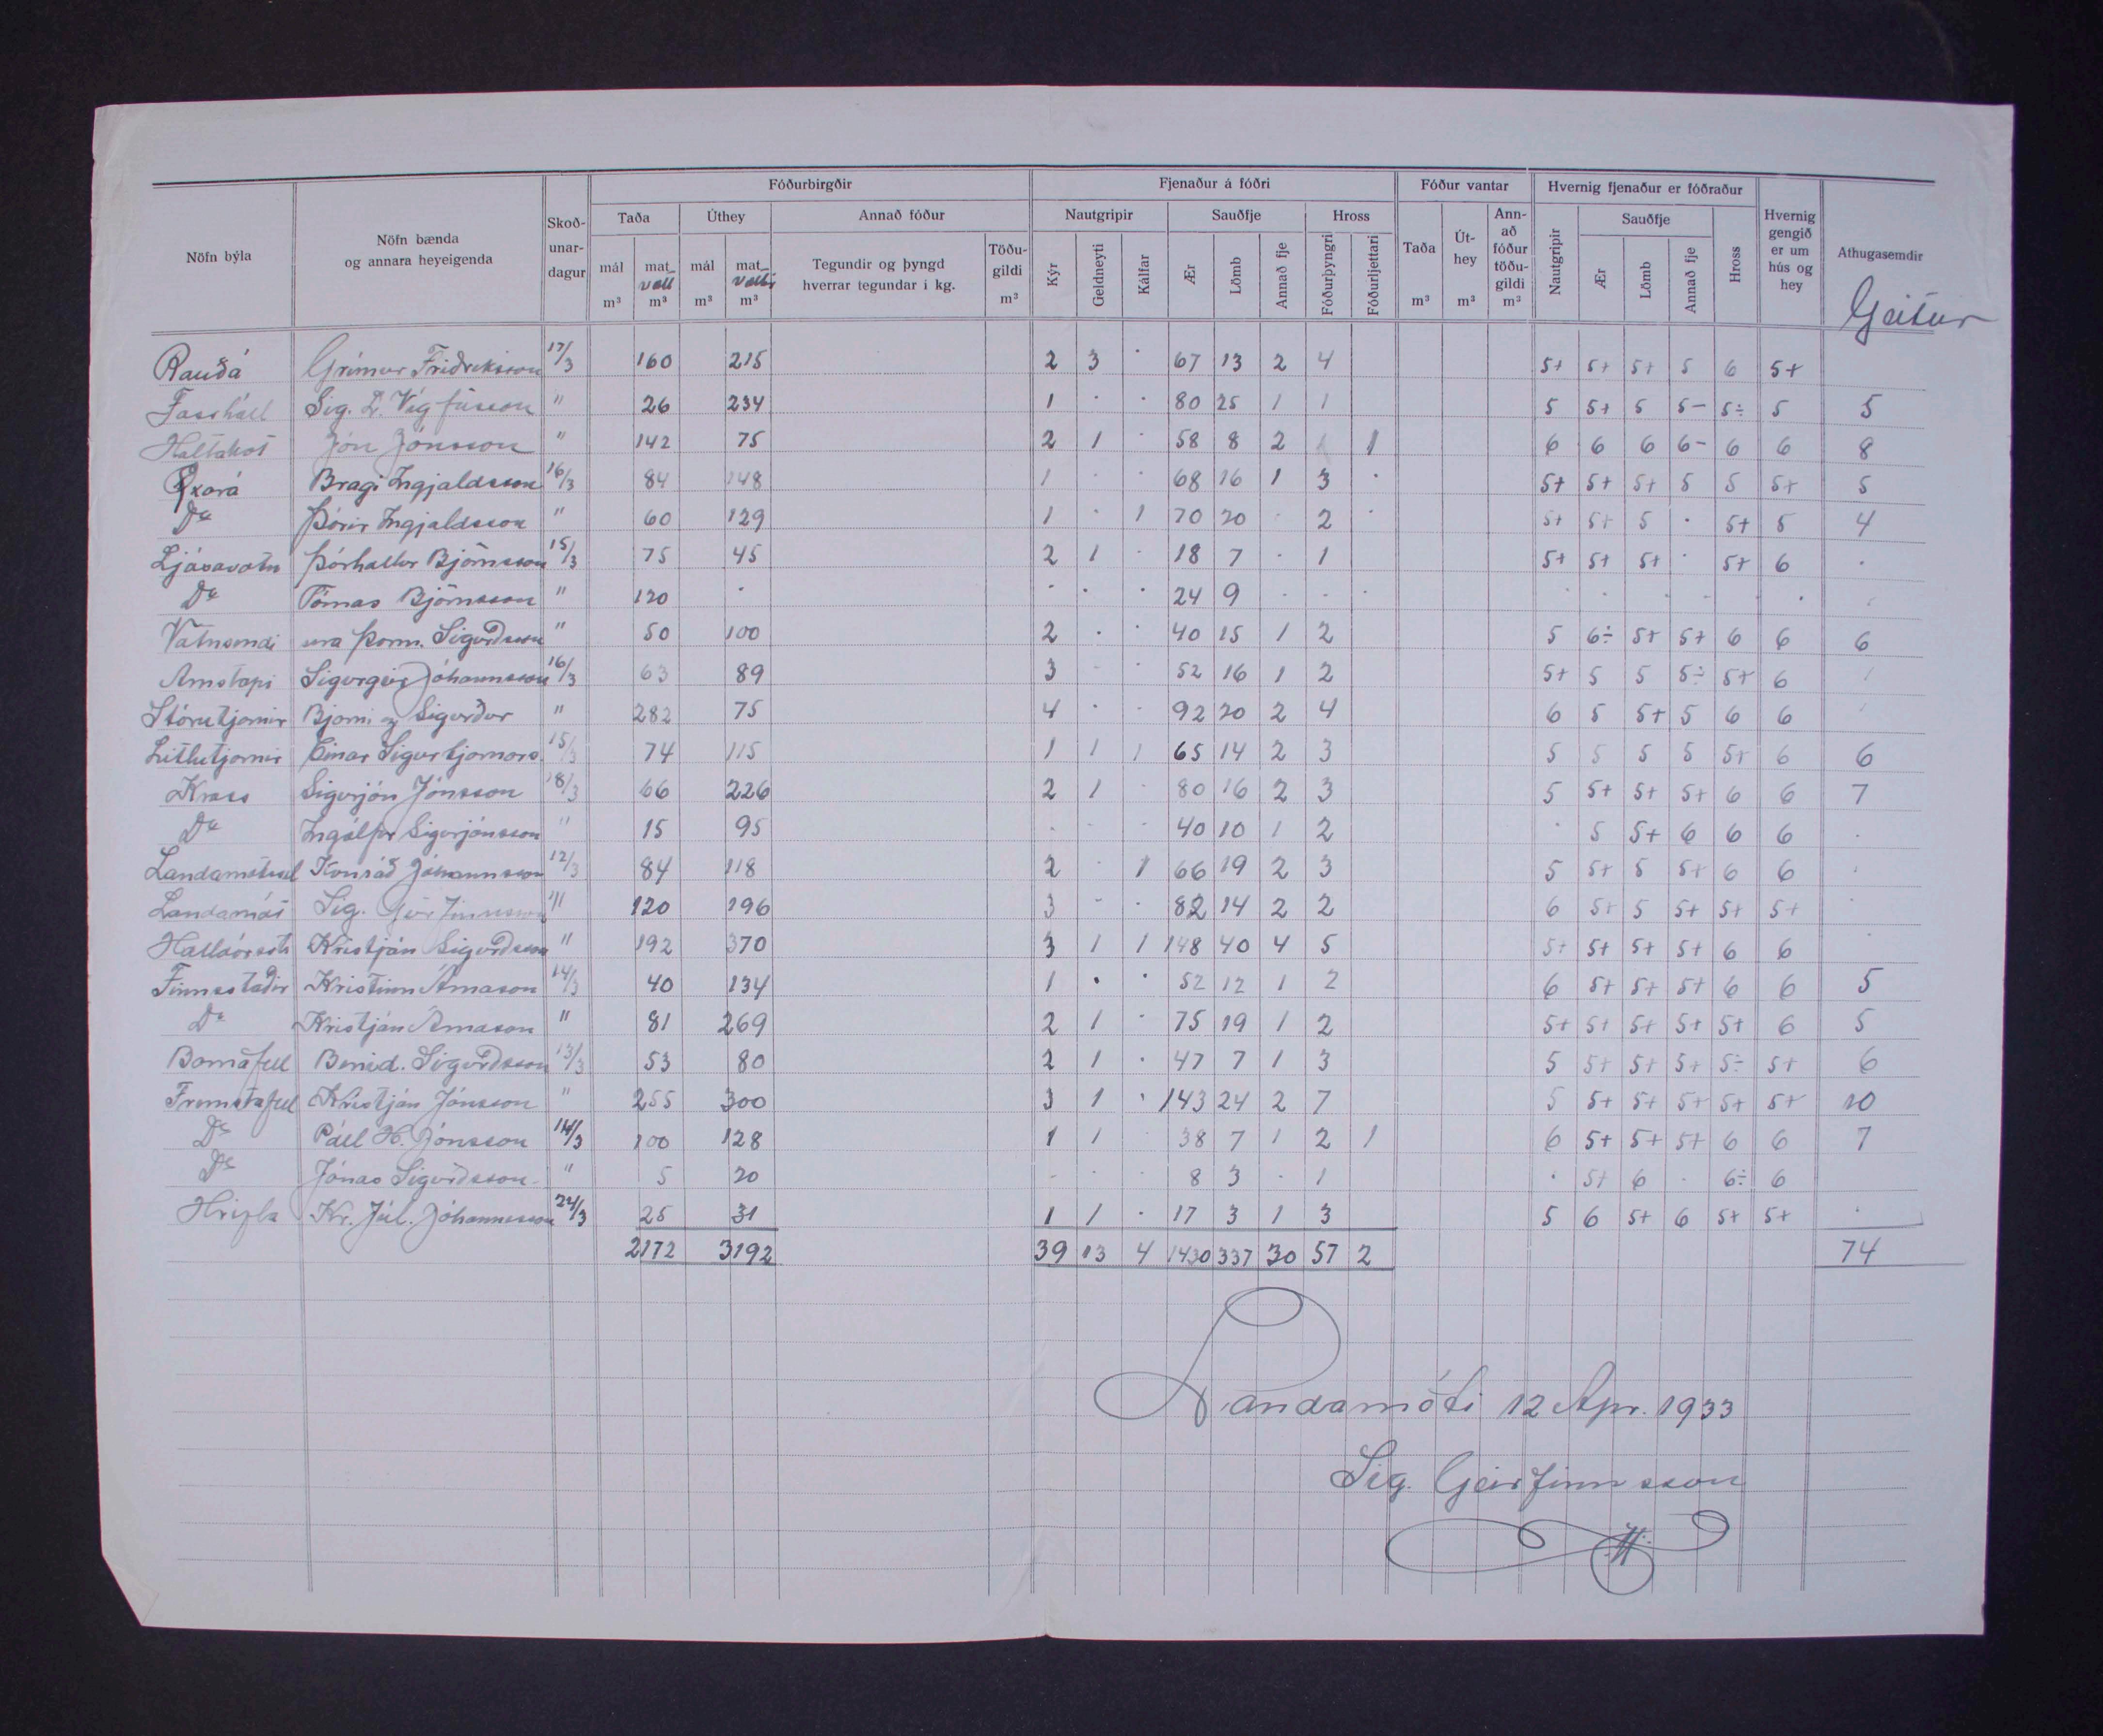 Fóðurbirgðir Fjenaður á fóðri Fóður vantar Hvernig fjenaður er fóðraður
Nöfn býla Nöfn bænda og annara heyeigenda Skoð-unar-dagur Taða Úthey Annað fóður Nautgripir Sauðfje Hross Taða Út-hey Ann-að fóður töðu-gildi Nautgripir Sauðfje Hross Hvernig gengið er um hús og hey Athugasemdir
mál mat mál mat Tegundir og þyngd hverrar tegundar í kg. Töðu-gildi Kýr Geldneyti Kálfar Ær Lömb Annað fje Fóðurþyngri Fóðurljettari Ær Lömb Annað fje
m³ m³ m³ m³ m³ m³ m³ m³
Geitur
Rauðá Grímur Friðriksson 17/3 160 215 2 3 · 67 13 2 4 5+ 5+ 5+ 5 6 5+
Fossháll Sig. L. Vigfússon " 26 234 1 · · 80 25 1 1 5 5+ 5 5- 5÷ 5 5
Holtakot Jón Jónsson " 142 75 2 1 · 58 8 2 1 6 6 6 6- 6 6 8
Öxará Bragi Ingjaldsson 16/3 84 148 1 · · 68 16 1 3 · 5+ 5+ 5+ 5 5 5+ 5
Do Þórir Ingjaldsson " 60 129 1 · 1 70 20 · 2 · 5+ 5+ 5 · 5+ 5 4
Ljósavatn Þórhallur Björnsson 15/3 75 45 2 1 · 18 7 · 1 5+ 5+ 5+ · 5+ 6 ·
Do Tómas Björnsson " 120 · · · · 24 9 · · · · · · · · ·
Vatnsendi Þorm. Sigurðsson " 50 100 2 · · 40 15 1 2 5 6÷ 5+ 5+ 6 6 6
Arnstapi Sigurgeir Jóhannsson 16/3 63 89 3 · · 52 16 1 2 5+ 5 5 5÷ 5+ 6
Stórutjornir Bjorni og Sigurður " 282 75 4 · · 92 20 2 4 6 5 5+ 5 6 6
Litlutjornir Einar Sigurbjornars 15/3 74 115 1 1 1 65 14 2 3 5 5 5 5 5+ 6 6
Kross Sigurjón Jónsson 18/3 66 226 2 1 · 80 16 2 3 5 5+ 5+ 5+ 6 6 7
Do Ingólfur Sigurjónsson " 15 95 · · · 40 10 1 2 · 5 5+ 6 6 6 ·
Landamótssel Konráð Jóhannsson 12/3 84 118 2 · 1 66 19 2 3 5 5+ 5 5+ 6 6 ·
Landamót Sig. Geirfinnsson " 120 196 3 - - 82 14 2 2 6 5+ 5 5+ 5+ 5+ ·
Halldórsst Kristján Sigurðsson " 192 370 3 1 1 148 40 4 5 5+ 5+ 5+ 5+ 6 6 ·
Finnsstaðir Kristinn Árnason 14/3 40 134 1 · · 52 12 1 2 6 5+ 5+ 5+ 6 6 5
Do Kristján Árnason " 81 269 2 1 · 75 19 1 2 5+ 5+ 5+ 5+ 5+ 6 5
Bornafell Benid. Sigurðsson 13/3 53 80 2 1 · 47 7 1 3 5 5+ 5+ 5+ 5÷ 5+ 6
Fremstafell Kristján Jónsson " 255 300 3 1 · 143 24 2 7 5 5+ 5+ 5+ 5+ 5+ 10
Do Páll H. Jónsson 14/3 100 128 1 1 38 7 1 2 1 6 5+ 5+ 5+ 6 6 7
Do Jónas Sigurðsson " 5 20 · · · 8 3 · 1 · 5+ 6 · 6÷ 6
Hrifla Kr. Júl. Jóhannesson 24/3 25 31 1 1 · 17 3 1 3 5 6 5+ 6 5+ 5+ ·
2172 3192 39 13 4 1430 337 30 57 2 74
Landamóti 12 Apr. 1933
Sig. Geirfinnsson